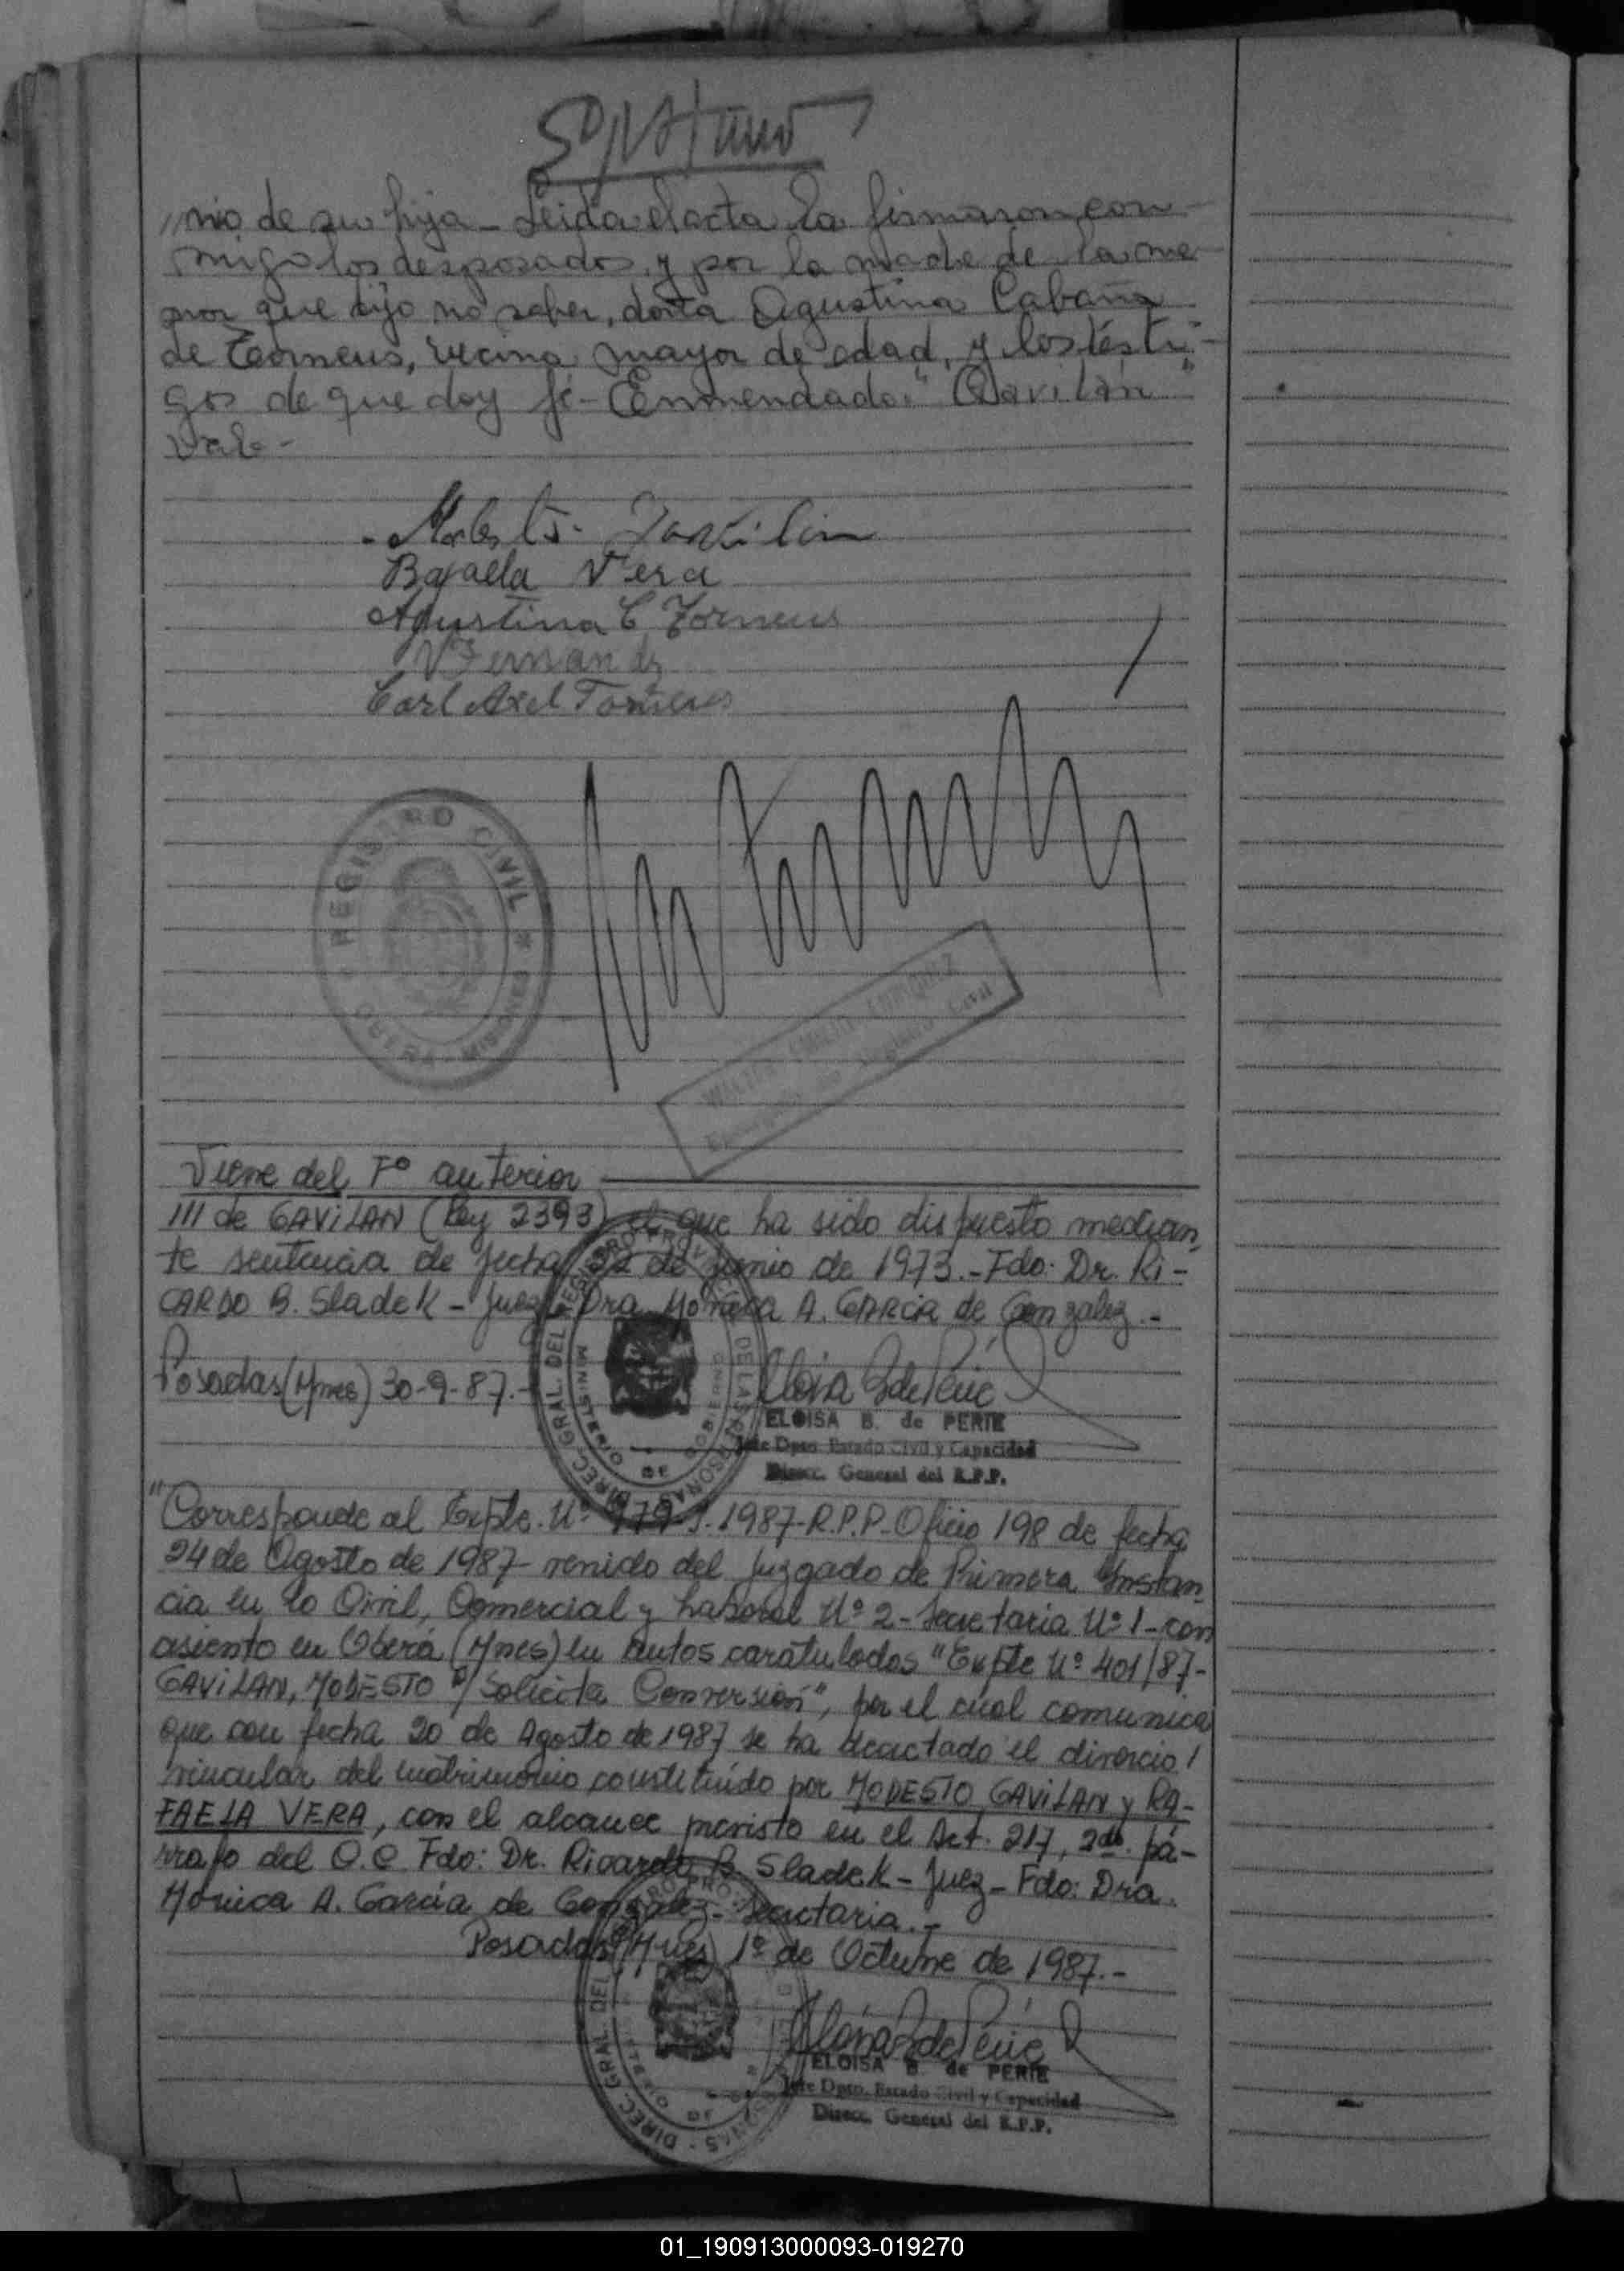 nio de su hija - Leida el acta la firmaron con-
migo los desposados, y por la madre de la me-
nor que dijo no saber, doña Agustina Cabaña
de Torneus, vecina mayor de edad, y los testi-
gos de que doy fé - Enmendado: "Gavilán"
Vale -
Modesto Gavilan
Rafaela Vera
Agustina C Torneus
V Fernandz
Carl Axel Torneus
REGISTRO CIVIL * MISIONES
Registro Civil
Viene del Fº anterior
/// de GAVILAN (Ley 2393) el que ha sido dispuesto median
te sentencia de fecha 22 de junio de 1973.- Fdo: Dr. Ri-
CARDO B. Sladek - Juez - Dra Mónica A. GARCIA de Gonzalez.-
Posadas (Mnes) 30-9-87.-
ELOISA B. de PERIE
Jefe Dpto Estado Civil y Capacidad
Direcc. General del R.P.P.
"Corresponde al Expte. Nº 979-J-1987-R.P.P-Oficio 198 de fecha
24 de Agosto de 1987- venido del Juzgado de Primera Instan
cia en lo Civil, Comercial y Laboral Nº 2 - Secretaria Nº 1 - con
asiento en Oberá (Mnes) en autos caratulados "Expte Nº 401/87-
GAVILAN, MODESTO s/ Solicita Conversión", por el cual comunica
que con fecha 20 de Agosto de 1987 se ha decretado el divorcio /
vincular del matrimonio constituído por MODESTO GAVILAN y RA-
FAELA VERA, con el alcance previsto en el Art. 217, 2do. pá-
rrafo del C.C Fdo: Dr. Ricardo B. Sladek - Juez - Fdo: Dra.
Mónica A. García de Gonzalez - Secretaria.-
Posadas (Mnes) 1º de Octubre de 1987.-
ELOISA B. de PERIE
Jefe Dpto. Estado Civil y Capacidad
Direcc. General del R.P.P.
01_190913000093-019270